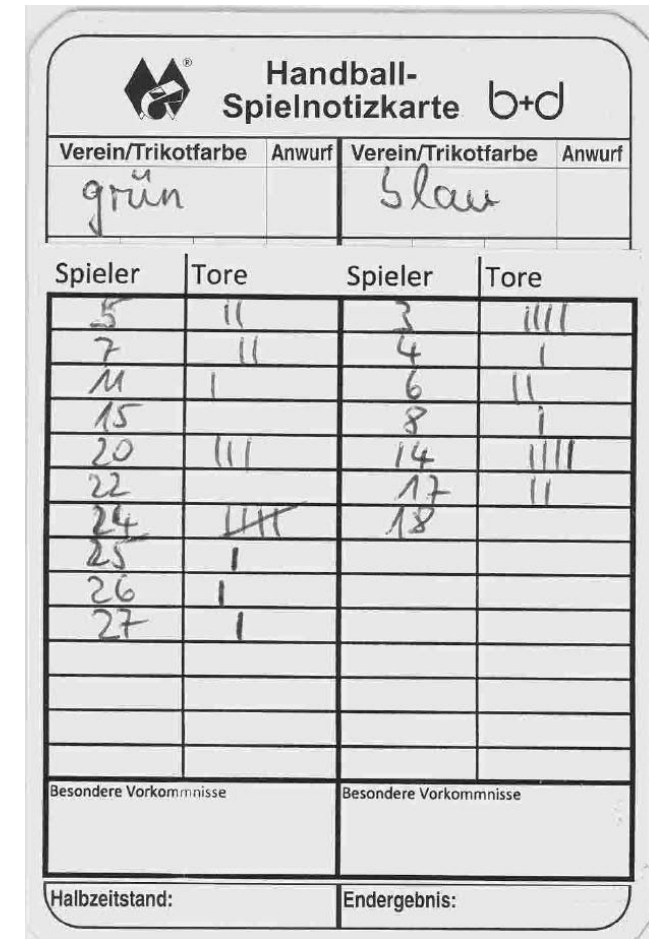 Handball-
Spielnotizkarte b+d
Verein/Trikotfarbe Anwurf Verein/Trikotfarbe Anwurf
grün blau
Spieler Tore Spieler Tore
5 || 3 ||||
7 || 4 |
11 | 6 ||
15 8 |
20 ||| 14 ||||
22 17 ||
24 𝍸 18
25 |
26 |
27 |
Besondere Vorkommnisse Besondere Vorkommnisse
Halbzeitstand: Endergebnis: